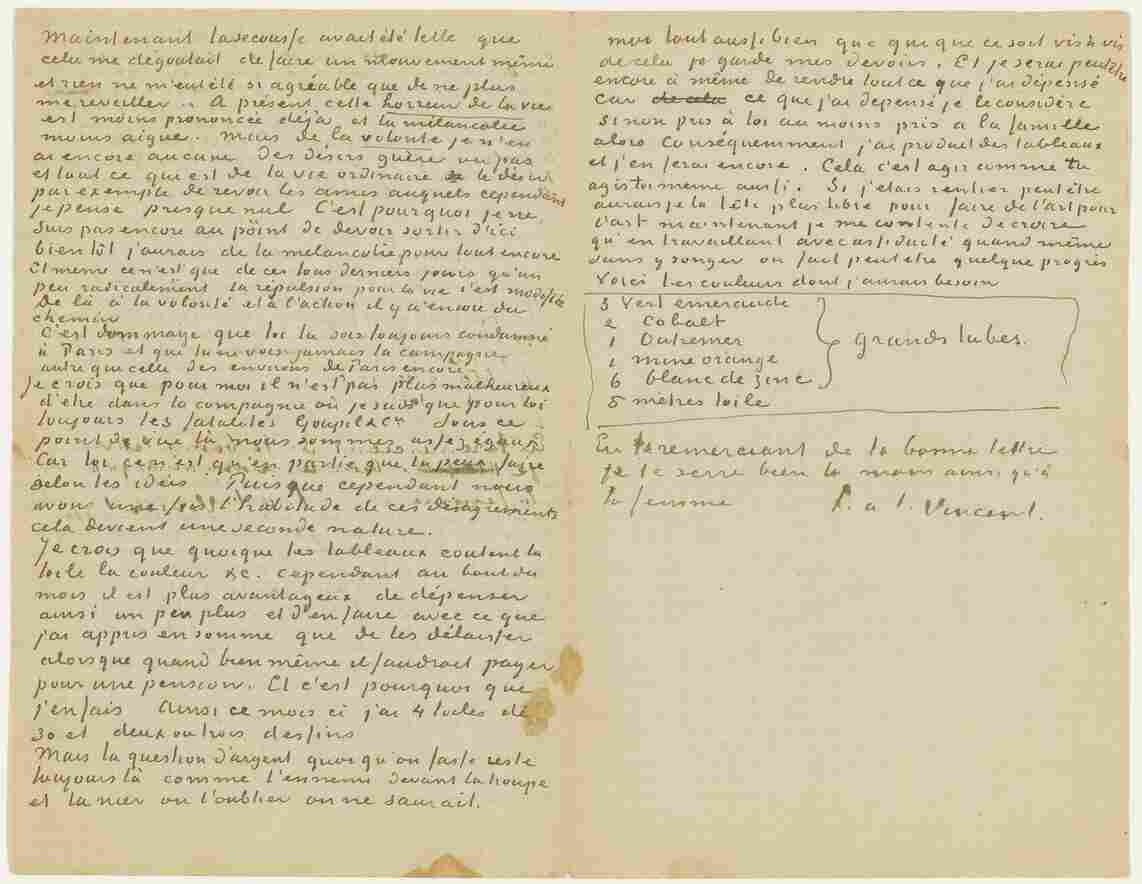 Maintenant la secousse avait été telle que
cela me dégoutait de faire un mouvement même
et rien ne m'eut été si agréable que de ne plus
me reveiller. A présent cette horreur de la vie
est moins prononcée déjà, et la mélancolie
moins aigue. Mais de la volonté je n'en
ai encore aucune des désirs guère ou pas
et tout ce qui est de la vie ordinaire le désir
par exemple de revoir les amis auxquels cependant
je pense presque nul. C'est pourquoi je ne
suis pas encore au point de devoir sortir d'ici
bientôt j'aurais de la melancolie pour tout encore
Et meme ce n'est que de ces tous derniers jours qu'un
peu radicalement la répulsion pour la vie s'est modifiée
De là à la volonté et à l'action il y a encore du
chemin
C'est dommage que toi tu sois toujours condamné
à Paris et que tu ne vois jamais la campagne
autre que celle des environs de Paris encore
Je crois que pour moi il n'est pas plus malheureux
d'etre dans la compagnie où je suis que pour toi
toujours les fatalités Goupil & Cie Sous ce
point de vue là nous sommes assez égaux
Car toi ce n'est qu'en partie que tu peux faire
selon tes idées Puisque cependant nous
avons une fois l'habitude de ces désagréments
cela devient une seconde nature.
Je crois que quoique les tableaux coutent la
toile la couleur &c. cependant au bout du
mois il est plus avantageux de dépenser
ainsi un peu plus et d'en faire avec ce que
j'ai appris en somme que de les délaisser
alorsque quand bien même il faudrait payer
pour une pension. Et c'est pourquoi que
j'en fais Ainsi ce mois ci j'ai 4 toiles de
30 et deux ou trois dessins
Mais la question d'argent quoi qu'on fasse reste
toujours là comme l'ennemi devant la troupe
et la nier ou l'oublier on ne saurait.
moi tout aussi bien que qui que ce soit vis à vis
de cela je garde mes devoirs. Et je serai peutetre
encore à même de rendre tout ce que j'ai dépensé
car de cela ce que j'ai depensé je le considère
sinon pris à toi au moins pris à la famille
alors conséquemment j'ai produit des tableaux
et j'en ferai encore. Cela c'est agir comme tu
agis toi meme aussi. Si j'etais rentier peut être
aurais je la tête plus libre pour faire de l'art pour
l'art maintenant je me contente de croire
qu'en travaillant avec assiduité quand même
sans y songer on fait peut etre quelque progrès
Voici les couleurs dont j'aurais besoin
3 Vert emeraude
2 Cobalt
1 Outremer
1 mine orange
6 blanc de zinc
grands tubes.
5 mètres toile
En te remerciant de ta bonne lettre
je te serre bien la main ainsi qu'à
ta femme
t. a t. Vincent.